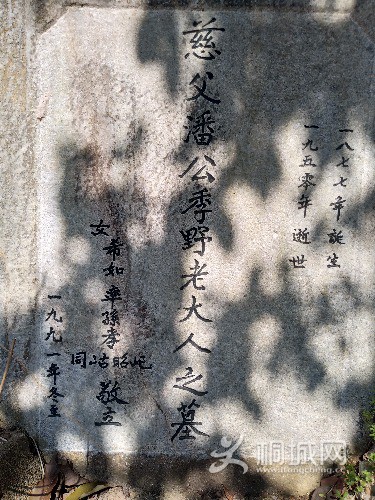 一八七七年誕生
一九五零年逝世
慈父潘公季野老大人之墓
女希如率孫孝屺昭岵同敬立
一九九一年冬立
桐城网
tongcheng.cc